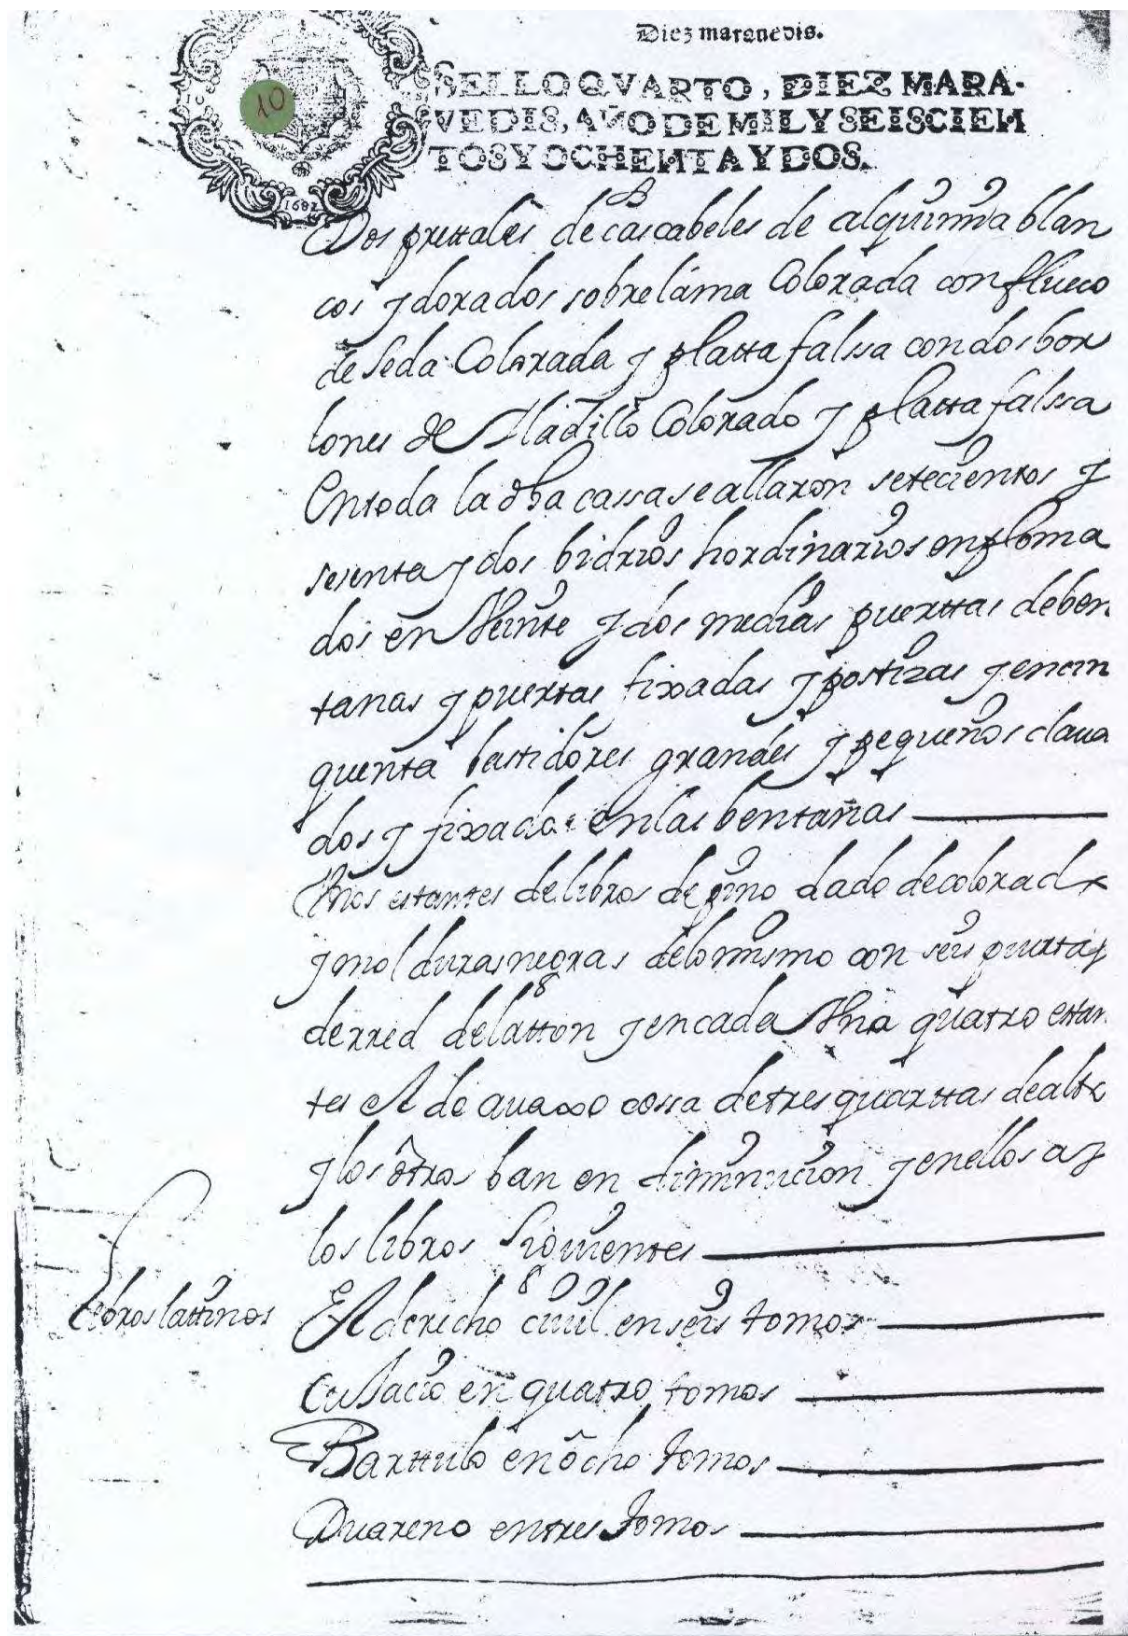 Diez maravedis.
SELLO QVARTO, DIEZ MARA-
VEDIS, AÑO DE MIL Y SEISCIEN
TOS Y OCHENTA Y DOS.
10
1682
Dos prettales de cascabeles de alquimia blan
cos y dorados sobre lama Colorada con flueco
de seda Colorada y platta falssa con dos bor
lones de Iladillo Colorado y platta falssa
En toda la dha cassa se allaron setecientos y
sesenta y dos bidrios hordinarios emploma
dos en Veinte y dos medias puerttas de ben
tanas y puertas fixadas y postizas y en cin
quenta bastidores grandes y pequeños claua
dos y fixados en las bentanas
Vnos estantes de libros de pino dado de colorado
y molduras negras de lo mismo con seis puertas
de rred de latton y en cada Vna quatro estan
tes El de auaxo cossa de tres quarttas de alto
y los otros ban en diminucion y en ellos ay
los libros siguientes
Libros lattinos
El derecho ciuil en seis tomos
CuJacio en quatro tomos
Barttulo en ocho tomos
Duareno en tres tomos